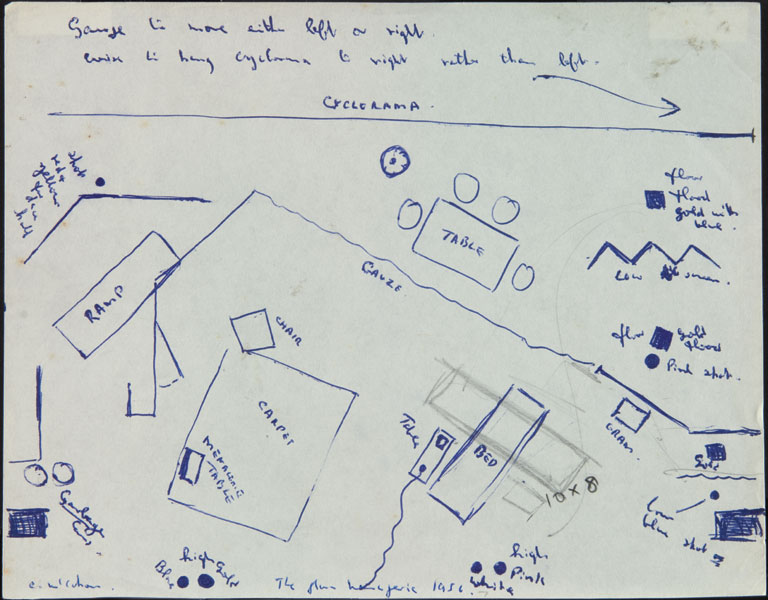 Gauze to move either left or right.
wise to hang cyclorama to right rather than left.
CYCLORAMA.
shot
red &
yellow
hall
floor
flood
gold with
blue.
TABLE
GAUZE.
Low screen.
RAMP
CHAIR
floor
gold
flood
Pink shot.
CARPET
MENAGERIE
TABLE
Table
BED
GRAM.
10 x 8
Gold
Garbage
Cans.
low
blue shot
high
Blue Gold
high
Pink
White
The glass menagerie 1956.